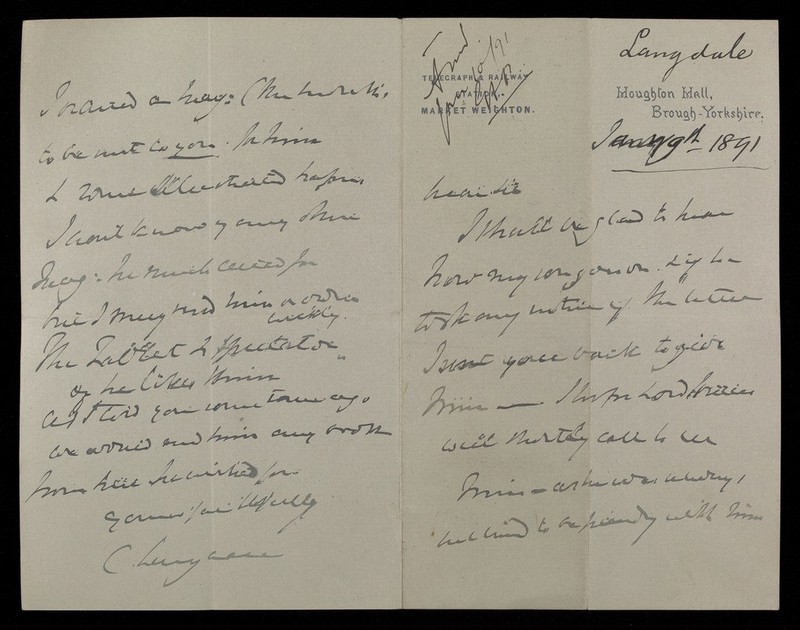 Jan 10/91
TELEGRAPH & RAILWAY
STATION.
MARKET WEIGHTON.
Langdale
Houghton Hall,
Brough-Yorkshire.
Jany 9th 1891
Dear Sir
I shall be glad to hear
how my son goes on. & if he
took any notice of the letter
I sent you back to give
him — I hope Lord
will shortly call to see
him – as he was always
inclined to be friendly with him
I ordered a Mag:
to be sent to you. for him
& some illustrated papers
I don't know of any other
Mag: he much cared for
but I may send him
weekly.
The Tablet & Spectator
if he likes them
as I told you some time ago
we would send him any book
from here he wished for
yours faithfully
C. Langdale